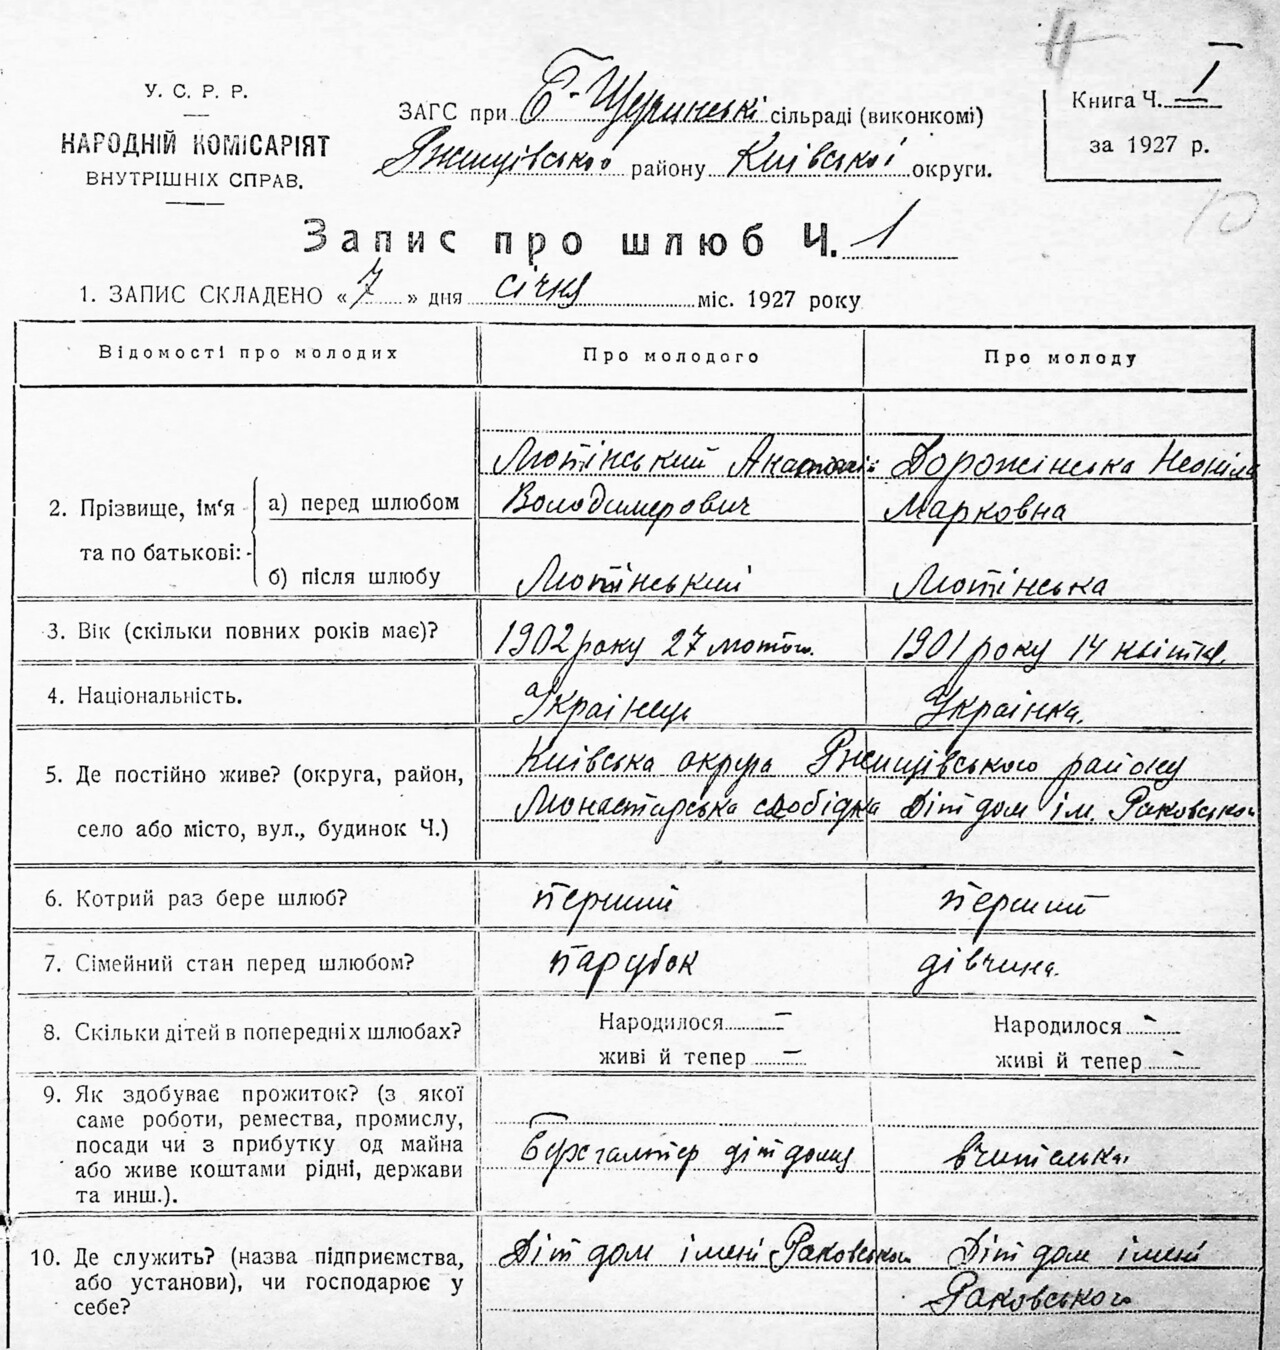 У. С. Р. Р.
НАРОДНІЙ КОМІСАРІЯТ
ВНУТРІШНІХ СПРАВ.
ЗАГС при Б-Щучинські сільраді (виконкомі)
Ржищівського району Київської округи.
Книга Ч. 1
за 1927 р.
10
Запис про шлюб Ч. 1
1. ЗАПИС СКЛАДЕНО «7» дня січня міс. 1927 року
Відомості про молодих Про молодого Про молоду
2. Прізвище, ім'я та по батькові:
а) перед шлюбом
Мотінський
Володимерович
Дорожінська Неоніла
Марковна
б) після шлюбу Мотінський Мотінська
3. Вік (скільки повних років має)? 1902 року 27 лютого. 1901 року 14 квітня.
4. Національність. Українець Українка.
5. Де постійно живе? (округа, район,
село або місто, вул., будинок Ч.)
Київська округа Ржищівського району
Монастирська слобідка Дітдом ім. Раковського
6. Котрий раз бере шлюб? перший перший
7. Сімейний стан перед шлюбом? парубок дівчина.
8. Скільки дітей в попередніх шлюбах? Народилося — Народилося -
живі й тепер — живі й тепер -
9. Як здобуває прожиток? (з якої
саме роботи, ремества, промислу,
посади чи з прибутку од майна
або живе коштами рідні, держави
та инш.).
Бухгалтер дітдому вчителька.
10. Де служить? (назва підприємства,
або установи), чи господарює у
себе?
Дітдом імені Раковського Дітдом імені
Раковського